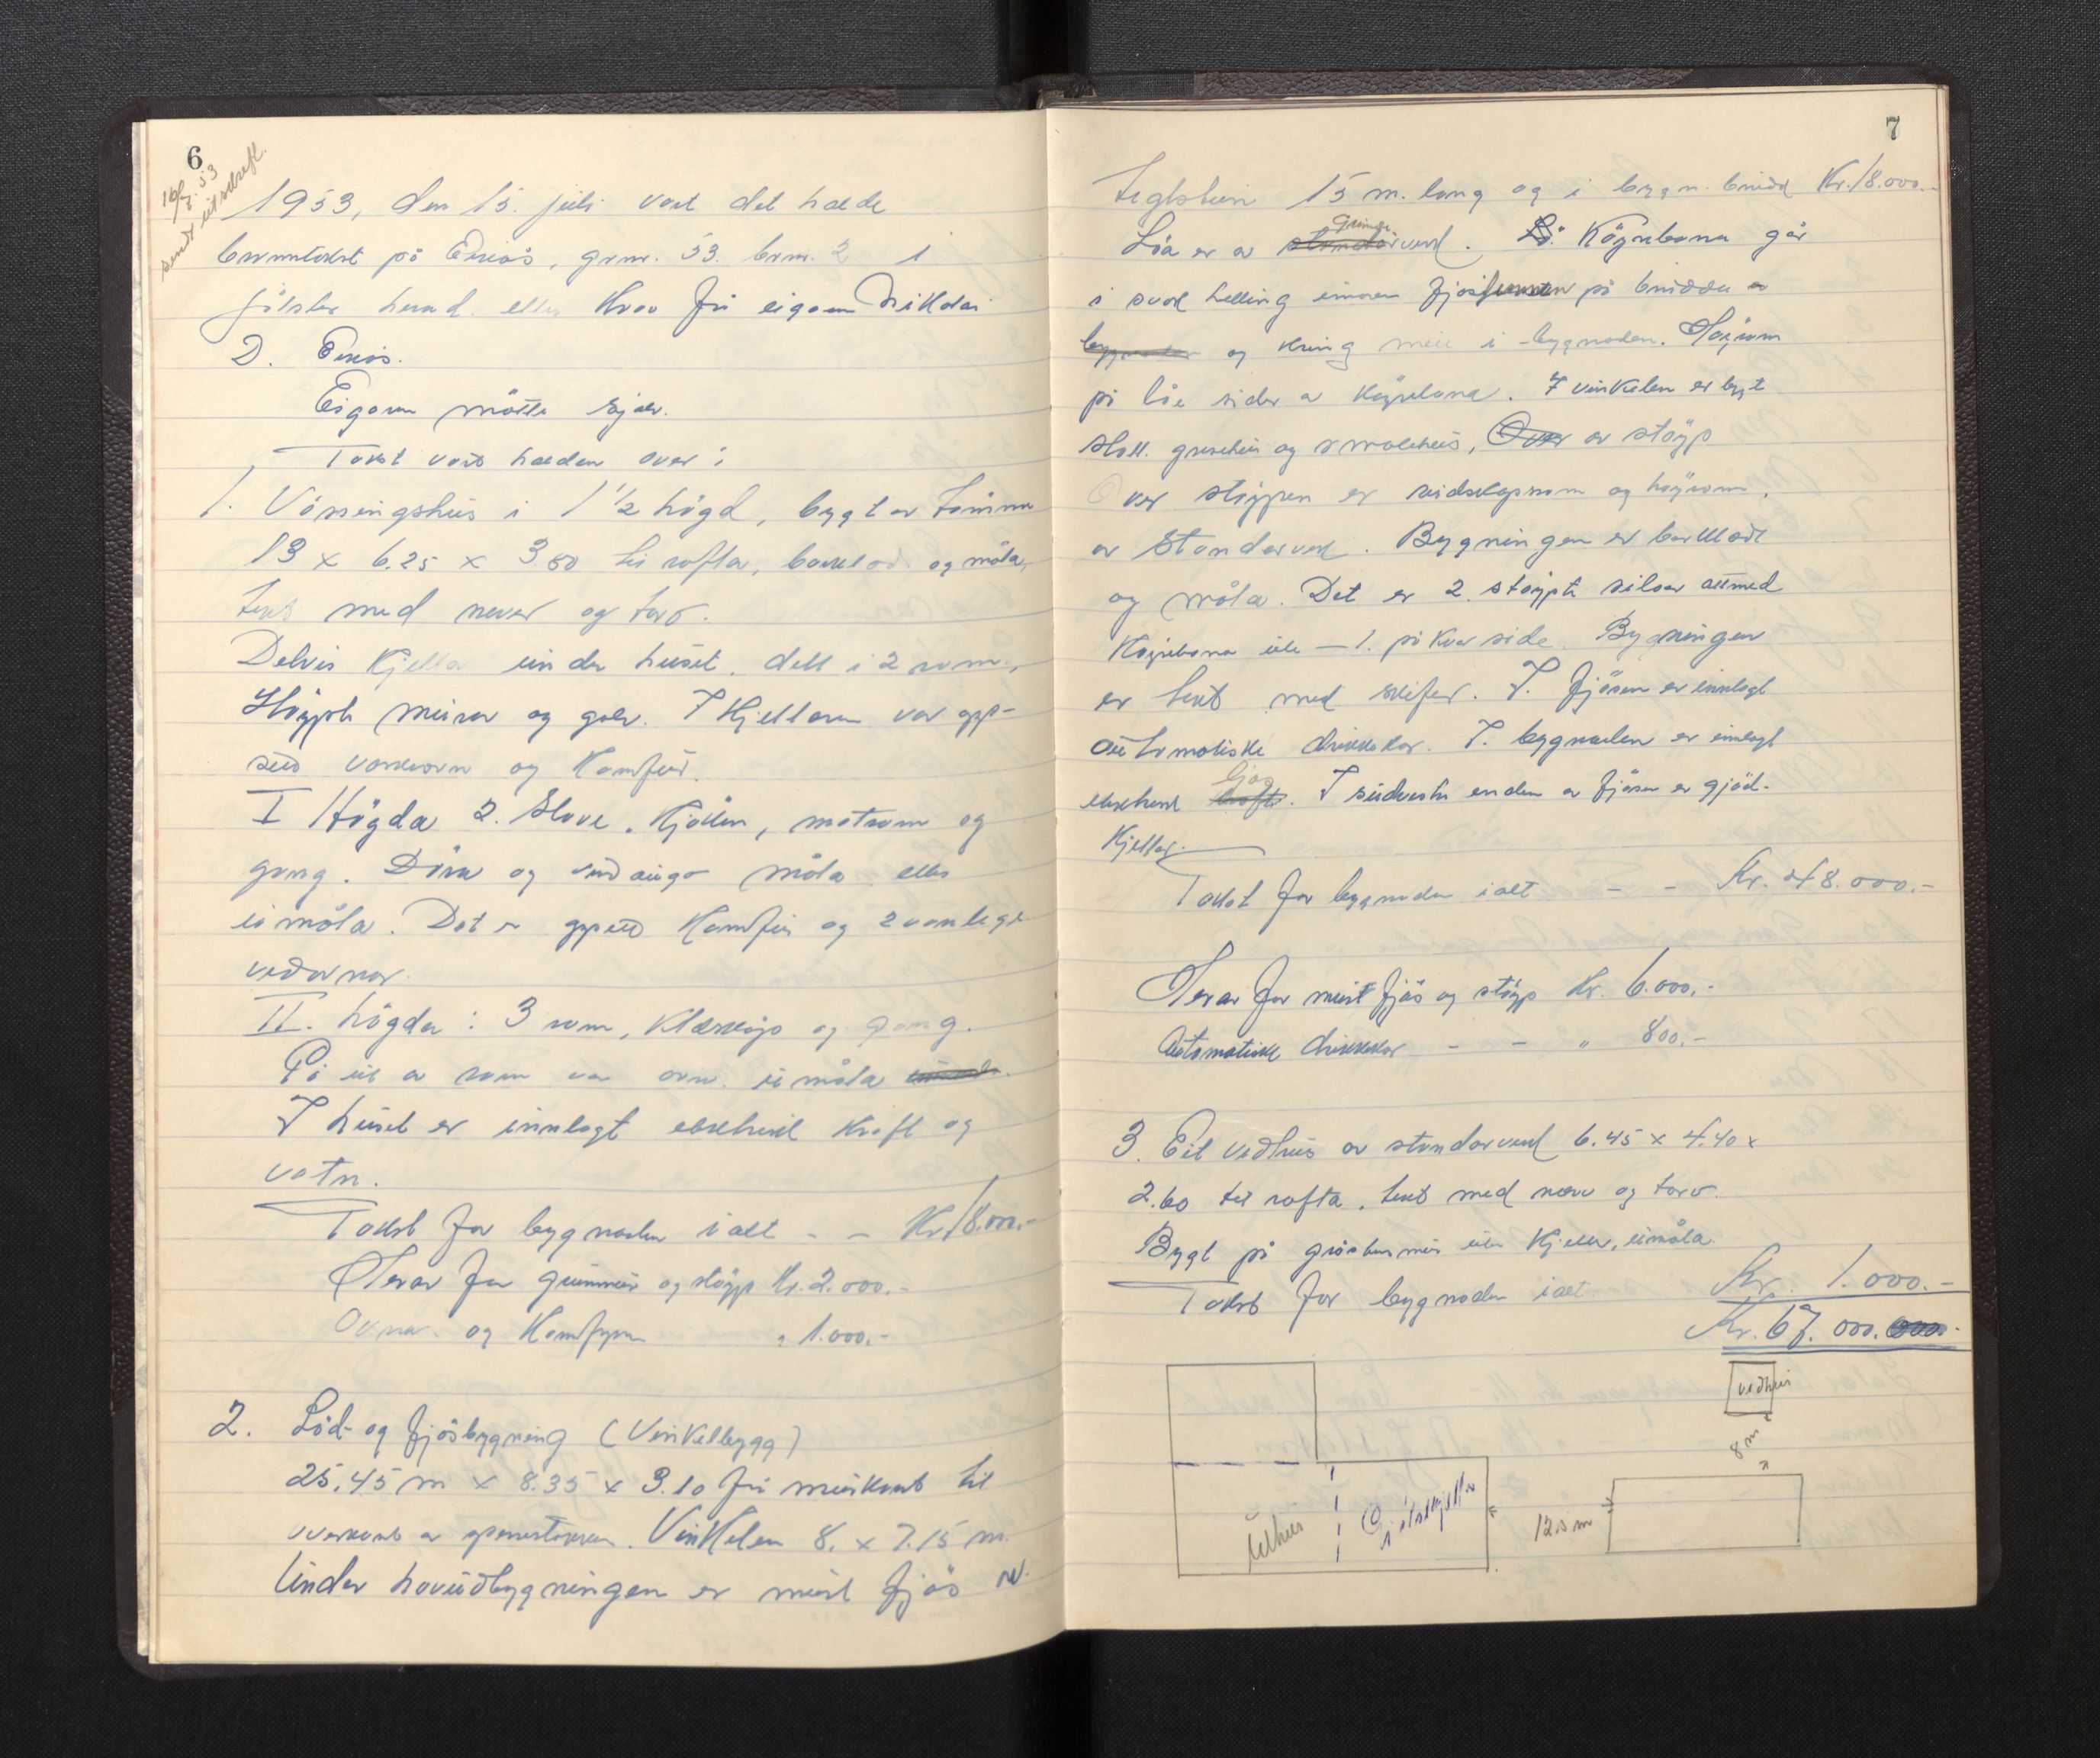 6
16/7.53
sendt utskrift.
1953, den 15. juli vart det halde
branntakst på Eikås, grnr. 53. brnr. 2 i
Jölster herad. etter krav frå eigaren Nikolai
D. Eikås.
Eigaren mötte sjølv.
Takst vart halden over:
1. Våningshus i 1 1/2 högd, bygt av tömmer
13 x 6.25 x 3.80 til rafta, bordklædd og måla,
tekt med never og torv.
Delvis kjellar under huset. delt i 2 rom.,
Stöypte murar og golv. I kjellaren var opp-
sett vaskeovn og komfyr.
I Högda 2. stove. kjöken, matrom og
gang. Dörer og vindaugo måla elles
umåla. Det er oppsett komfyr og 2 vanlege
vedomnar.
II. högda: 3 rom, klæskåp og gang.
På eit av rom var ovn. umåla
I huset er innlagt elektrisk kraft og
vatn.
Takst for bygnaden ialt - - Kr 18.000.-
Herav for grunnmur og stöyp Kr. 2.000.-
Ovnar og komfyrar " 1.000.-
2. Löd- og fjösbygning (Vinkelbygg)
25.45 m x 8.35 x 3.10 frå murkant til
overkant av sperrestokken. Vinkelen 8. x 7.15 m.
Under hovudbygningen er murt fjös av
7
teglstein 15 m. lang og i bygn. breidd Kr. 18.000.-
Löa er av grindverk. Köyrebana går
i svak helling innover fjösmuren på breidda av
og kring midt i bygnaden. Höyrom
på båe sider av köyrebana. I vinkelen er bygt
stall. grisehus og smalehus, av stöyp
Over stöypen er reidskapsrom og höyrom.
av standarverk. Bygningen er bordklædt
og måla. Det er 2. stöypte siloar attmed
köyrebana ute — 1. på kvar side. Bygningen
er tekt med skifer. I. fjösen er innlagt
automatiske drikkekar. I. bygnaden er innlagt
elektrisk ljos. I sudvestre enden av fjösen er gjöd-
kjellar.
Takst for bygnaden ialt - - Kr. 48.000.-
Herav for murt fjös og stöyp Kr. 6.000.-
Automatiske drikkekar - - " 800.-
3. Eit vedhus av standarverk 6.45 x 4.40 x
2.60 til rafta, tekt med never og torv.
Bygt på gråsteinsmur uten kjeller, umåla.
Takst for bygnaden ialt Kr. 1.000.-
Kr. 67.000.
vedhus
8 m
Uthus
Gjödselkjeller
12.5 m